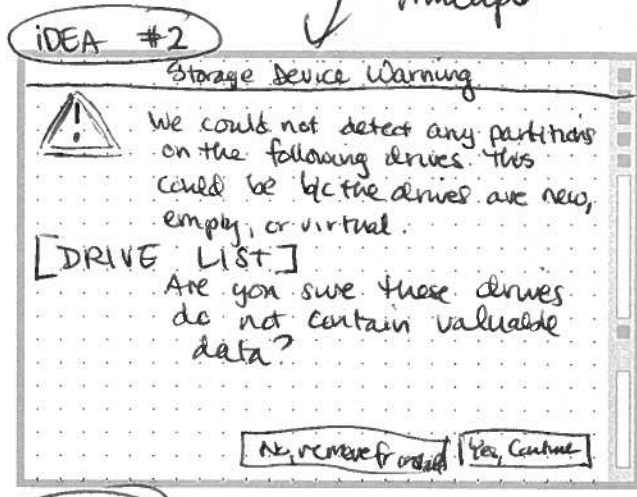 iDEA #2
Storage Device Warning
!
We could not detect any partitions
on the following drives. This
could be b/c the drives are new,
empty, or virtual.
[DRIVE LIST]
Are you sure these drives
do not contain valuable
data?
No, remove from
Yes, Continue